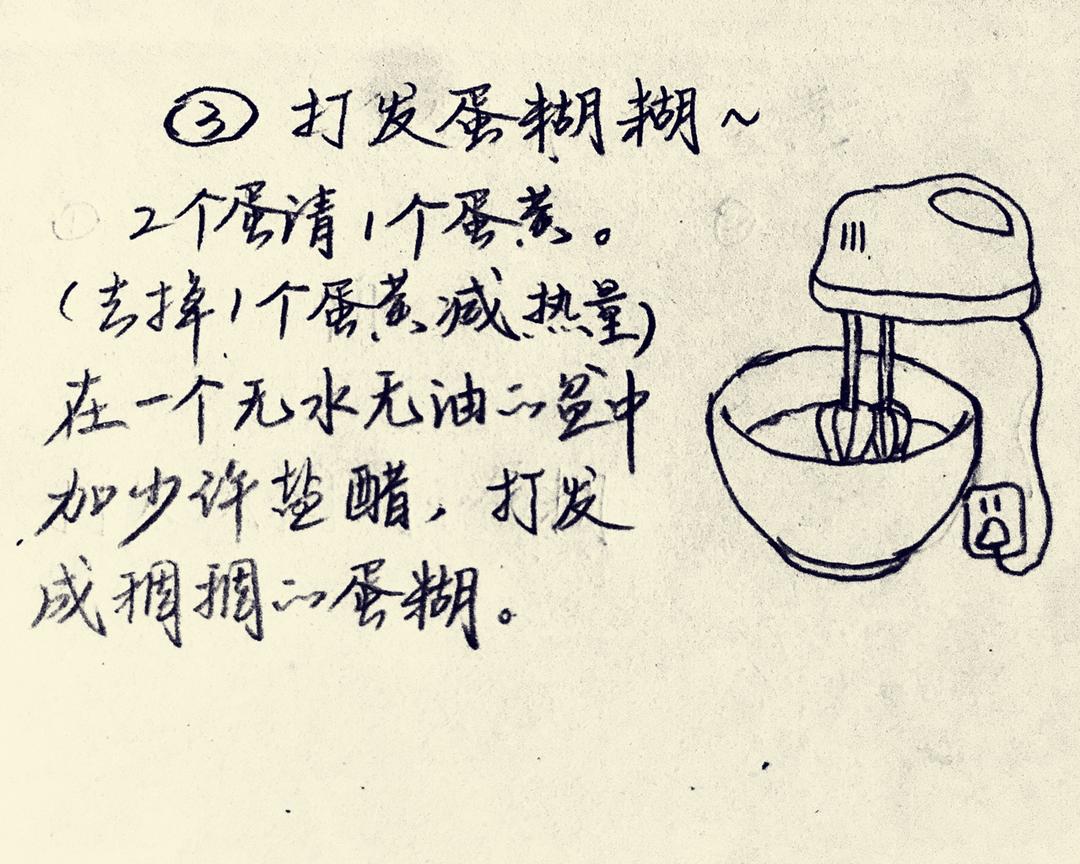 ③ 打发蛋糊糊~
2个蛋请1个蛋黄。
(去掉1个蛋黄减热量)
在一个无水无油的盆中
加少许盐醋，打发
成稠稠的蛋糊。